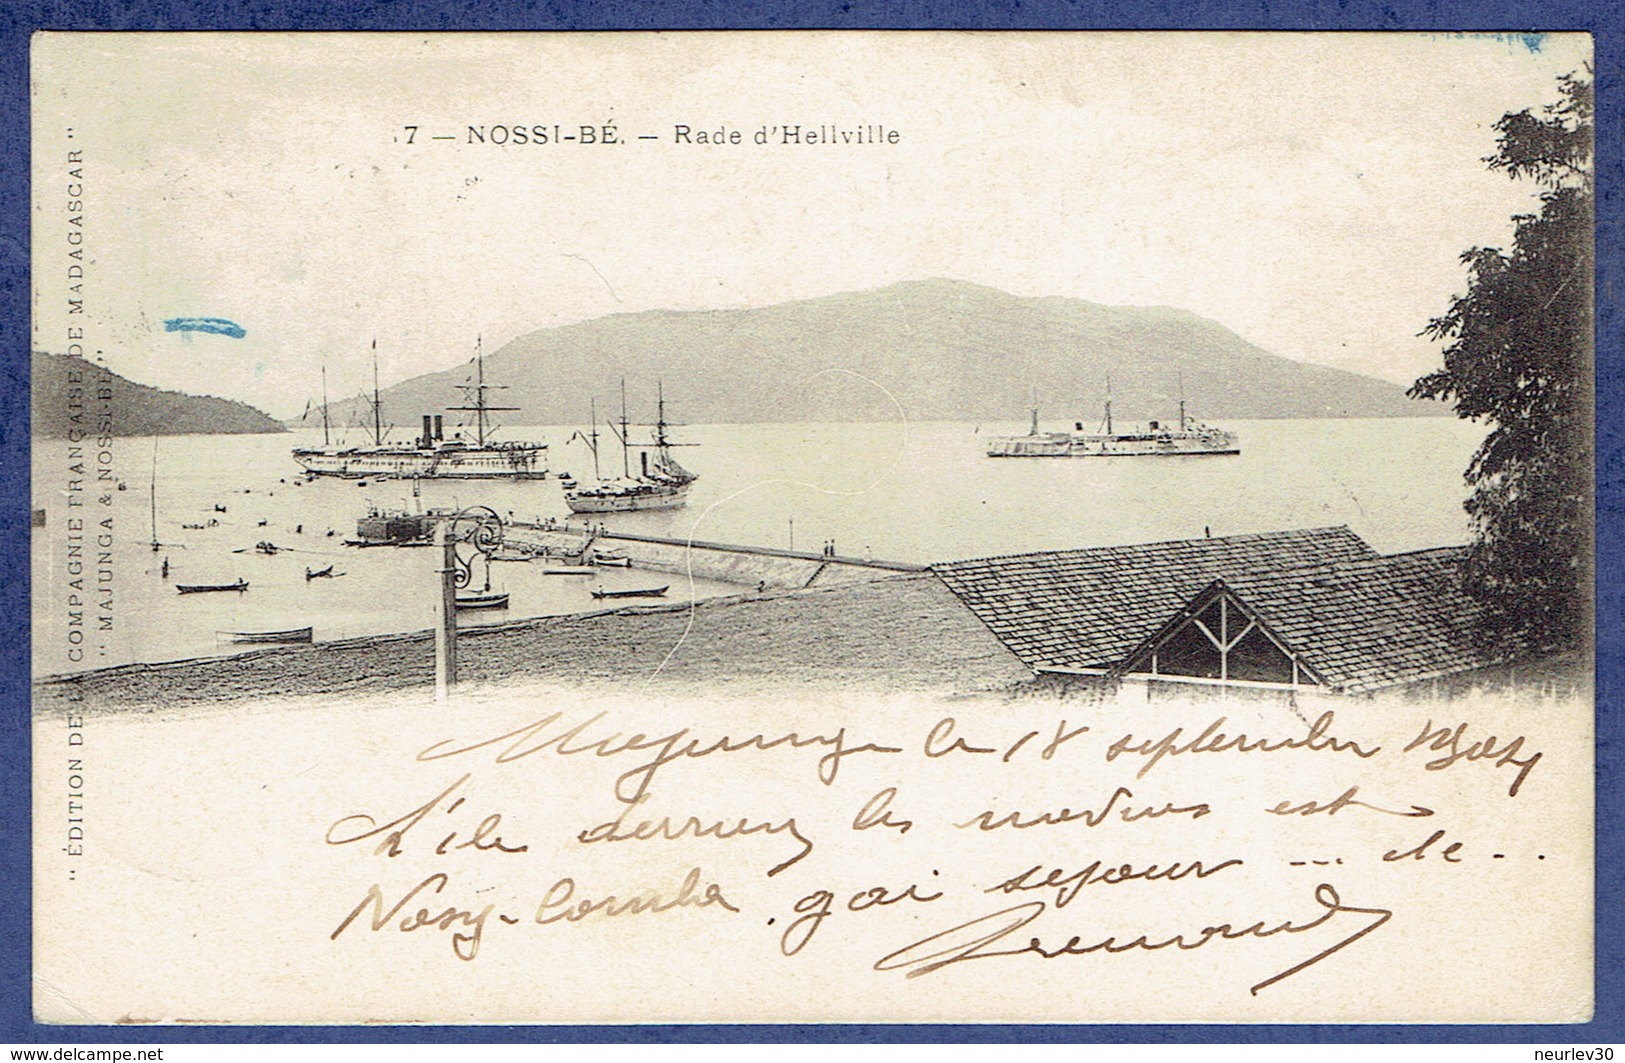 7 — NOSSI-BÉ. — Rade d'Hellville
" ÉDITION DE LA COMPAGNIE FRANÇAISE DE MADAGASCAR "
" MAJUNGA & NOSSI-BÉ "
Majunga le 18 septembre 1904
L'île derrière les navires est
Nosy-Comba. gai séjour ... de ..
www.delcampe.net
neurlev30